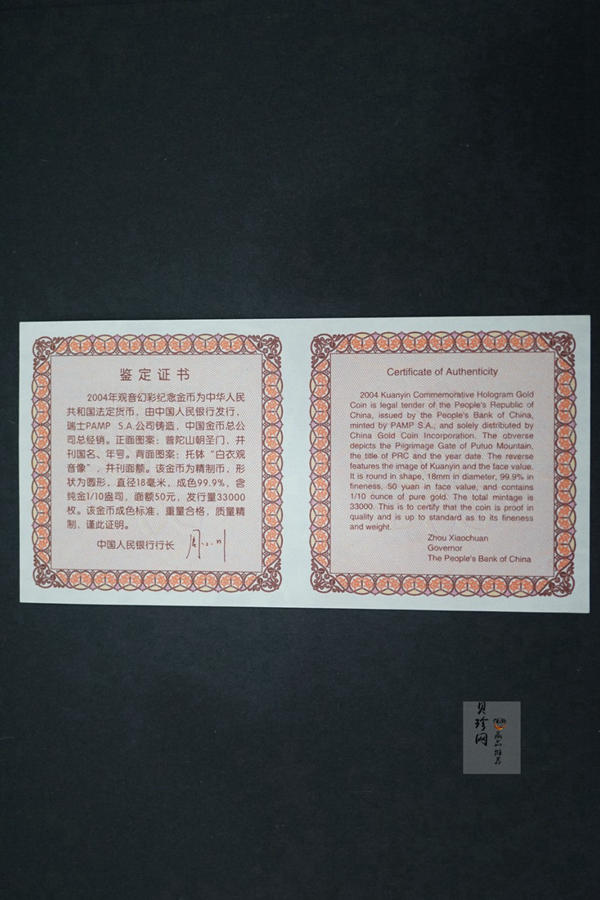 鉴定证书
2004年观音幻彩纪念金币为中华人民
共和国法定货币，由中国人民银行发行，
瑞士PAMP S.A.公司铸造，中国金币总公
司总经销。正面图案：普陀山朝圣门，并
刊国名、年号。背面图案：托钵“白衣观
音像”，并刊面额。该金币为精制币，形
状为圆形，直径18毫米，成色99.9%，含
纯金1/10盎司，面额50元，发行量33000
枚。该金币成色标准，重量合格，质量精
制，谨此证明。
中国人民银行行长
Certificate of Authenticity
2004 Kuanyin Commemorative Hologram Gold
Coin is legal tender of the People's Republic of
China, issued by the People's Bank of China,
minted by PAMP S.A., and solely distributed by
China Gold Coin Incorporation. The obverse
depicts the Pilgrimage Gate of Putuo Mountain,
the title of PRC and the year date. The reverse
features the image of Kuanyin and the face value.
It is round in shape, 18mm in diameter, 99.9% in
fineness, 50 yuan in face value, and contains
1/10 ounce of pure gold. The total mintage is
33000. This is to certify that the coin is proof in
quality and is up to standard as to its fineness
and weight.
Zhou Xiaochuan
Governor
The People's Bank of China
贝珍网